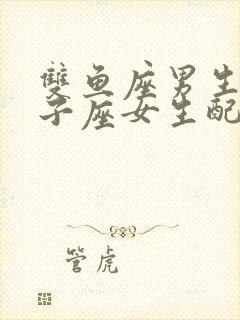 雙鱼座男生
子座女生配
管虎